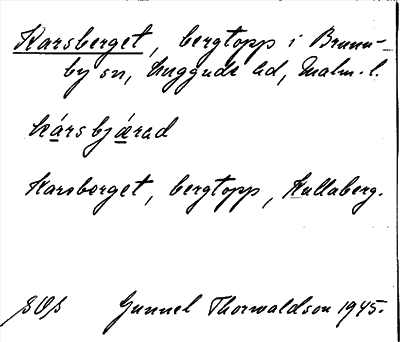 Karsberget, bergtopp i Brunn-
by sn, Luggude hd, Malm. l.
kársbjærad
Karsberget, bergtopp, Kullaberg.
Gunnel Thorwaldson 1945.